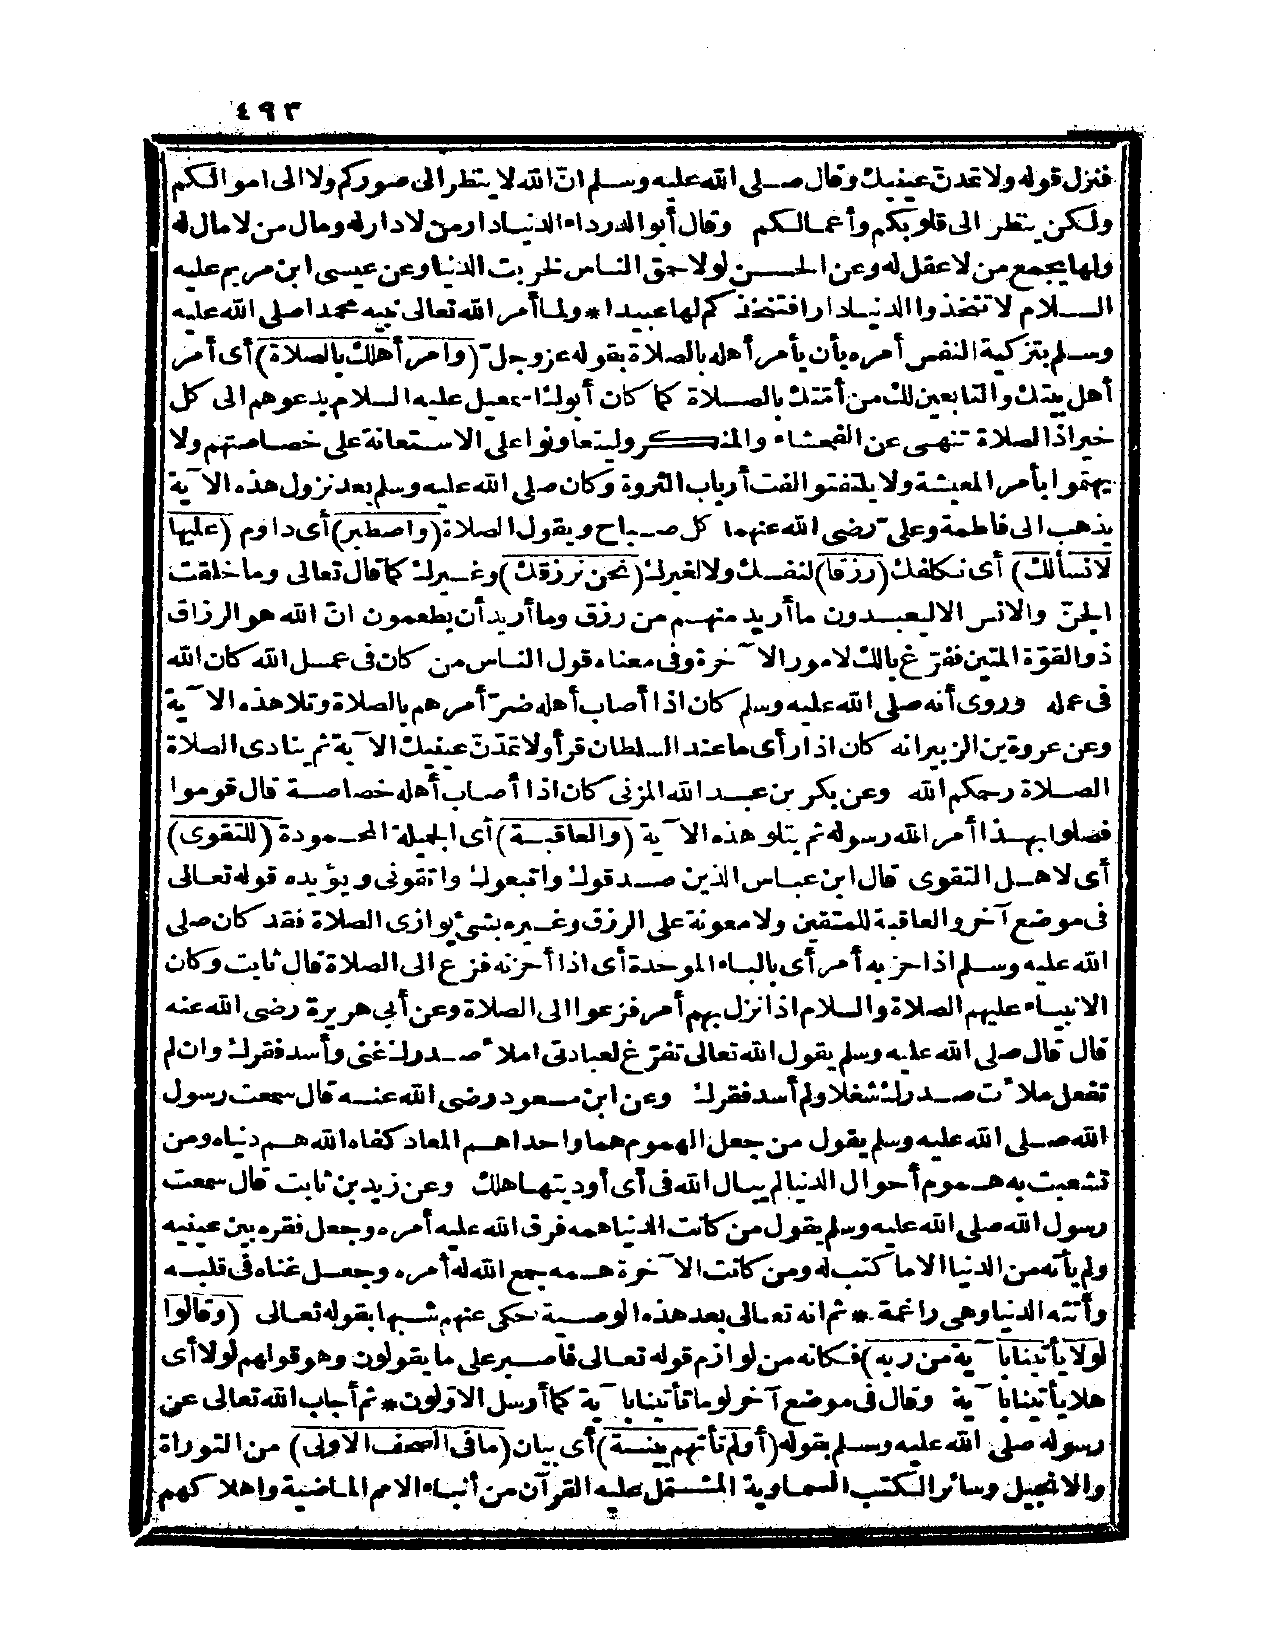 ٤٩٣
فنزل قوله ولا تمدنّ عينيك وقال صلى الله عليه وسلم انّ الله لا ينظر الى صوركم ولا الى اموالكم
ولكن ينظر الى قلوبكم وأعمالكم وقال أبو الدرداء الدنيا دار من لا دار له ومال من لا مال له
ولها يجمع من لا عقل له وعن الحسن لولا حمق الناس لخربت الدنيا وعن عيسى ابن مريم عليه
السلام لا تتخذوا الدنيا دارا فتتخذكم لها عبيدا * ولما أمر الله تعالى نبيه محمدا صلى الله عليه
وسلم بتزكية النفس أمره بأن يأمر أهله بالصلاة بقوله عز وجلّ (وامر أهلك بالصلاة) أى أمر
أهل بيتك والتابعين لك من أمّتك بالصلاة كما كان أبوك اسمعيل عليه السلام يدعوهم الى كل
خير اذ الصلاة تنهى عن الفحشاء والمنكر وليتعاونوا على الاستعانة على خصاصتهم ولا
يهتموا بأمر المعيشة ولا يلتفتوا لفت أرباب الثروة وكان صلى الله عليه وسلم بعد نزول هذه الآية
يذهب الى فاطمة وعلىّ رضى الله عنهما كل صباح ويقول الصلاة (واصطبر) أى داوم (عليها
لانسألك) أى نكلفك (رزقا) لنفسك ولا لغيرك (نحن نرزقك) وغيرك كما قال تعالى وما خلقت
الجنّ والانس الا ليعبدون ما أريد منهم من رزق وما أريد أن يطعمون انّ الله هو الرزاق
ذو القوّة المتين ففرّغ بالك لامور الآخرة وفى معناه قول الناس من كان فى عمل الله كان الله
فى عمله وروى أنه صلى الله عليه وسلم كان اذا أصاب أهله ضرّ أمرهم بالصلاة وتلا هذه الآية
وعن عروة بن الزبير انه كان اذا رأى ما عند السلطان قرأ ولا تمدّنّ عينيك الآية ثم ينادى الصلاة
الصلاة رحمكم الله وعن بكر بن عبد الله المزنى كان اذا أصاب أهله خصاصة قال قوموا
فصلوا بهذا أمر الله رسوله ثم يتلو هذه الآية (والعاقبة) أى الجميلة المحمودة (للتقوى)
أى لاهل التقوى قال ابن عباس الذين صدقوك واتبعوك واتقونى ويؤيده قوله تعالى
فى موضع آخر والعاقبة للمتقين ولا معونة على الرزق وغيره بشئ يوازى الصلاة فقد كان صلى
الله عليه وسلم اذا حزبه أمر أى بالباء الموحدة أى اذا أحزنه فزع الى الصلاة قال ثابت وكان
الانبياء عليهم الصلاة والسلام اذا نزل بهم أمر فزعوا الى الصلاة وعن أبى هريرة رضى الله عنه
قال قال صلى الله عليه وسلم يقول الله تعالى تفرّغ لعبادتى املأ صدرك غنى وأسد فقرك وان لم
تفعل ملأت صدرك شغلا ولم أسد فقرك وعن ابن مسعود رضى الله عنه قال سمعت رسول
الله صلى الله عليه وسلم يقول من جعل الهموم هما واحدا هم المعاد كفاه الله هم دنياه ومن
تشعبت به هموم أحوال الدنيا لم يبال الله فى أى أوديتها هلك وعن زيد بن ثابت قال سمعت
رسول الله صلى الله عليه وسلم يقول من كانت الدنيا همه فرق الله عليه أمره وجعل فقره بين عينيه
ولم يأته من الدنيا الا ما كتب له ومن كانت الآخرة همه جمع الله له أمره وجعل غناه فى قلبه
وأتته الدنيا وهى راغمة * ثم انه تعالى بعد هذه الوصية حكى عنهم شبها بقوله تعالى (وقالوا
لولا يأتينا بآية من ربه) فكانه من لوازم قوله تعالى فاصبر على ما يقولون وهو قولهم لولا أى
هلا يأتينا بآية وقال فى موضع آخر لوما تأتينا بآية كما أرسل الاوّلون * ثم أجاب الله تعالى عن
رسوله صلى الله عليه وسلم بقوله (أولم تأتهم بينة) أى بيان (ما فى الصحف الاولى) من التوراة
والانجيل وسائر الكتب السماوية المشتمل عليه القرآن من أنباء الامم الماضية واهلاكهم